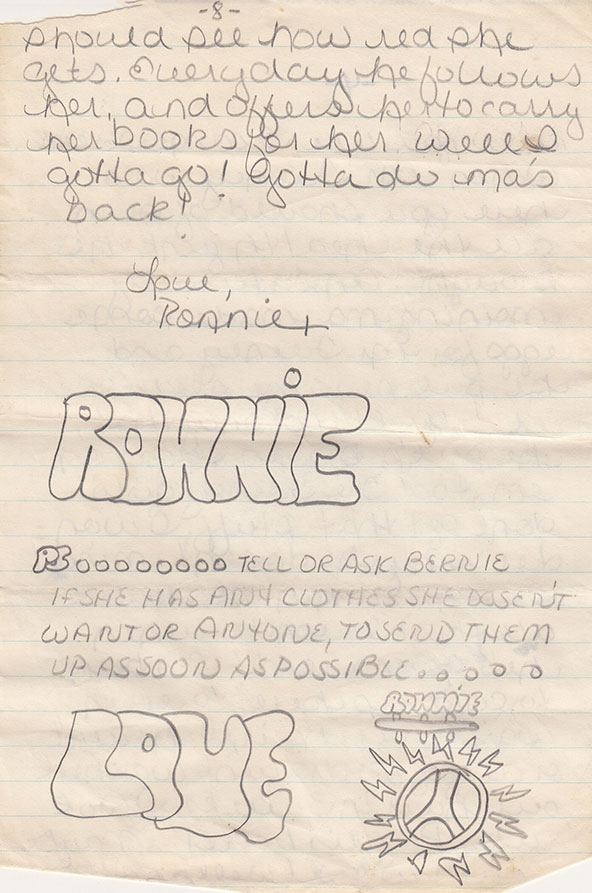 -8-
should see how red she
gets. Everyday he follows
her, and offers her to carry
her books for her well I
gotta go! Gotta do ma's
back!
Love,
Ronnie
RONNIE
PS oooooooo TELL OR ASK BERNIE
IF SHE HAS ANY CLOTHES SHE DOSEN'T
WANT OR ANYONE, TO SEND THEM
UP AS SOON AS POSSIBLE . o o o o o
RONNIE
LOVE